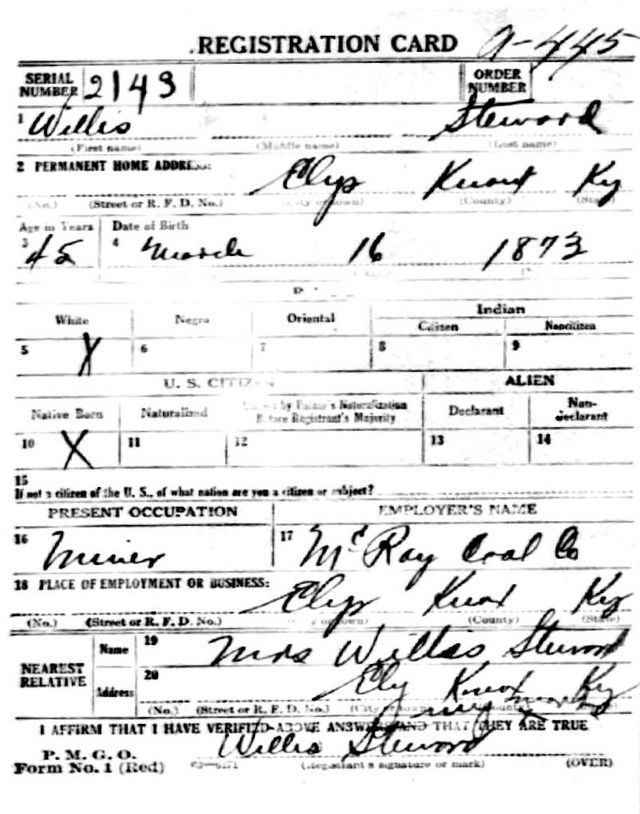 REGISTRATION CARD A-445
SERIAL NUMBER 2143 ORDER NUMBER
1 Willis Steword
(First name) (Middle name) (Last name)
2 PERMANENT HOME ADDRESS:
Elys Knox Ky
(No.) (Street or R. F. D. No.) (City or town) (County) (State)
Age in Years Date of Birth
3 45 4 March 16 1873
Indian
White Negro Oriental Citizen Noncitizen
5 X 6 7 8 9
U. S. CITIZEN ALIEN
Native Born Naturalized by Father's Naturalization Before Registrant's Majority Declarant Non-declarant
10 X 11 12 13 14
15
If not a citizen of the U. S., of what nation are you a citizen or subject?
PRESENT OCCUPATION EMPLOYER'S NAME
16 Miner 17 Mc Ray Coal Co
18 PLACE OF EMPLOYMENT OR BUSINESS:
Elys Knox Ky
(No.) (Street or R. F. D. No.) (City or town) (County) (State)
NEAREST RELATIVE
Name 19 Mrs Willis Steword
Address 20 Ely Knox Ky
(No.) (Street or R. F. D. No.) (City or town) (County) (State)
I AFFIRM THAT I HAVE VERIFIED ABOVE ANSWERS AND THAT THEY ARE TRUE
P. M. G. O.
Form No. 1 (Red) Willis Steword
(Registrant's signature or mark) (OVER)